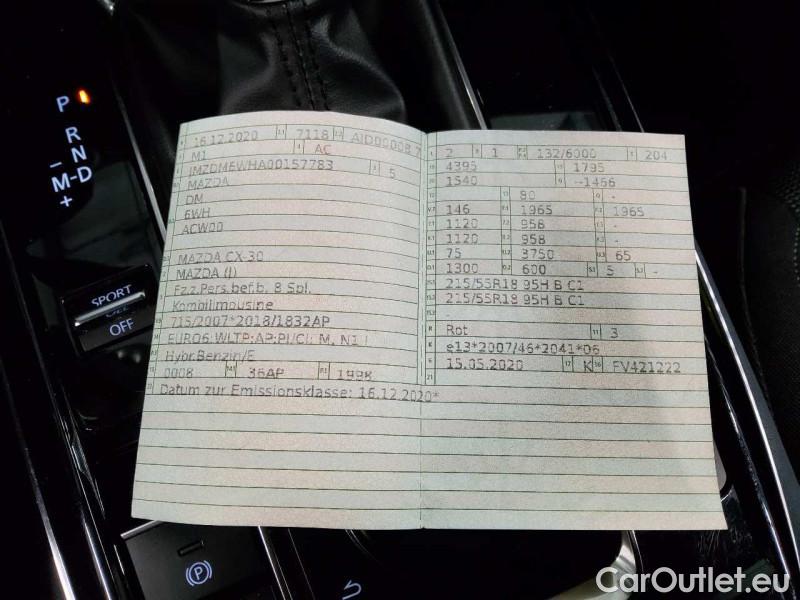 P
R
N
M-D
+
SPORT
OFF
16.12.2020 7118 AID00008 7
M1 AC
JMZDM6WHA00157783 5
MAZDA
DM
6WH
ACW00
MAZDA CX-30
MAZDA (J)
Fz.z.Pers.bef.b. 8 Spl.
Kombilimousine
715/2007*2018/1832AP
EURO6;WLTP;AP;PI/CI; M, N1 I
Hybr.Benzin/E
0008 36AP 1998
Datum zur Emissionsklasse: 16.12.2020*
2 1 132/6000 204
4395 1795
1540 --1466
80 -
146 1965 1965
1120 958 -
1120 958 -
75 3750 65
1300 600 5 -
215/55R18 95H B C1
215/55R18 95H B C1
Rot 3
e13*2007/46*2041*06
15.05.2020 K FV421222
(P)
CarOutlet.eu